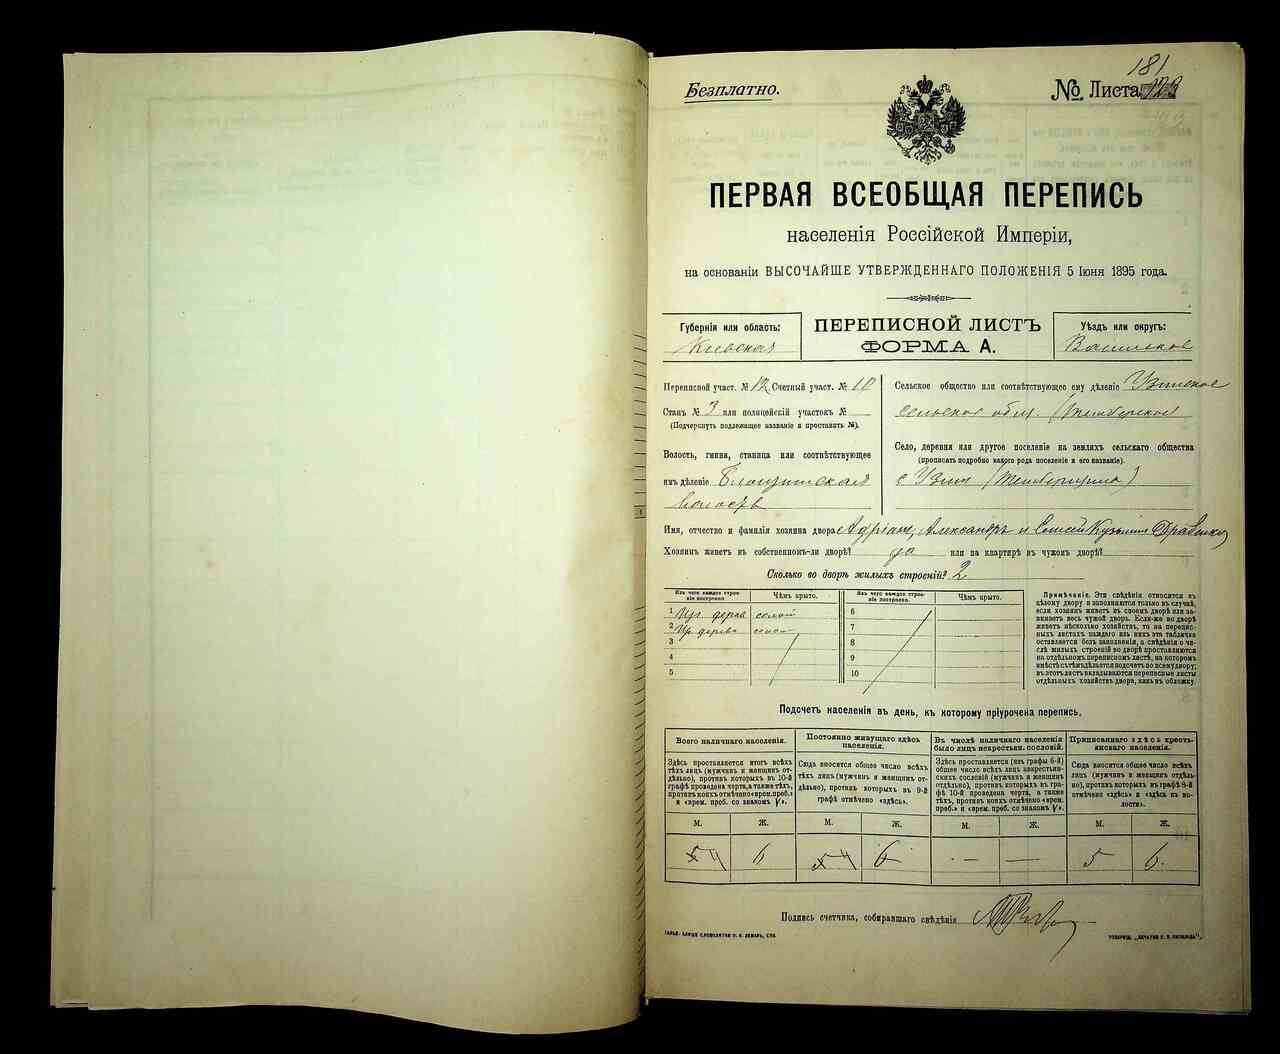 181
Безплатно.
№ Листа 123
ПЕРВАЯ ВСЕОБЩАЯ ПЕРЕПИСЬ
населенія Россійской Имперіи,
на основаніи ВЫСОЧАЙШЕ УТВЕРЖДЕННАГО ПОЛОЖЕНІЯ 5 Іюня 1895 года.
Губернія или область:
Кіевская
ПЕРЕПИСНОЙ ЛИСТЪ
ФОРМА А.
Уѣздъ или округъ:
Переписной участ. № 12 Счетный участ. № 10
Станъ № 3 или полицейскій участокъ №
(Подчеркнуть подлежащее названіе и проставить №).
Волость, гмина, станица или соотвѣтствующее
имъ дѣленіе
волость
Сельское общество или соотвѣтствующее ему дѣленіе Узинское
сельское общ.
Село, деревня или другое поселеніе на земляхъ сельскаго общества
(прописать подробно какого рода поселеніе и его названіе).
с Узин
Имя, отчество и фамилія хозяина двора Адріанъ, Александръ и
Хозяинъ живетъ въ собственномъ-ли дворѣ? да или на квартирѣ въ чужомъ дворѣ?
Сколько во дворѣ жилыхъ строеній? 2
Изъ чего каждое строеніе построено.
Чѣмъ крыто.
Изъ чего каждое строеніе построено.
Чѣмъ крыто.
1 дерев солом
2 дерева
3
4
5
6
7
8
9
10
Примѣчаніе. Эти свѣдѣнія относятся къ
цѣлому двору и заполняются только въ случаѣ,
если хозяинъ живетъ въ своемъ дворѣ или занимаетъ
весь чужой дворъ. Если-же во дворѣ
живетъ нѣсколько хозяйствъ, то на переписныхъ
листахъ каждаго изъ нихъ эта табличка
оставляется безъ заполненія, а свѣдѣнія о числѣ
жилыхъ строеній во дворѣ проставляются
на отдѣльномъ переписномъ листѣ, на которомъ
вмѣстѣ съ тѣмъ дѣлается подсчетъ по всему двору;
въ этотъ листъ вкладываются переписные листы
отдѣльныхъ хозяйствъ двора, какъ въ обложку.
Подсчетъ населенія въ день, къ которому пріурочена перепись.
Всего наличнаго населенія.
Здѣсь проставляется итогъ всѣхъ
тѣхъ лицъ (мужчинъ и женщинъ отдѣльно),
противъ которыхъ въ 10-й
графѣ проведена черта, а также тѣхъ,
противъ коихъ отмѣчено «врем. проб.»
и «врем. проб. со знакомъ V».
Постоянно живущаго здѣсь
населенія.
Сюда вносится общее число всѣхъ
тѣхъ лицъ (мужчинъ и женщинъ отдѣльно),
противъ которыхъ въ 9-й
графѣ отмѣчено «здѣсь».
Въ числѣ наличнаго населенія
было лицъ некрестьян. сословій.
Здѣсь проставляется (изъ графы 6-й)
общее число всѣхъ лицъ некрестьянскихъ
сословій (мужчинъ и женщинъ
отдѣльно), противъ которыхъ въ графѣ
10-й проведена черта, а также
тѣхъ, противъ коихъ отмѣчено «врем.
проб.» и «врем. проб. со знакомъ V».
Приписаннаго здѣсь крестьянскаго
населенія.
Сюда вносится общее число всѣхъ
лицъ (мужчинъ и женщинъ отдѣльно),
противъ которыхъ въ графѣ 8-й
отмѣчено «здѣсь» и «здѣсь къ волости».
М. Ж. М. Ж. М. Ж. М. Ж.
5 4 6 5 4 6 - — 5 6.
Подпись счетчика, собиравшаго свѣдѣнія